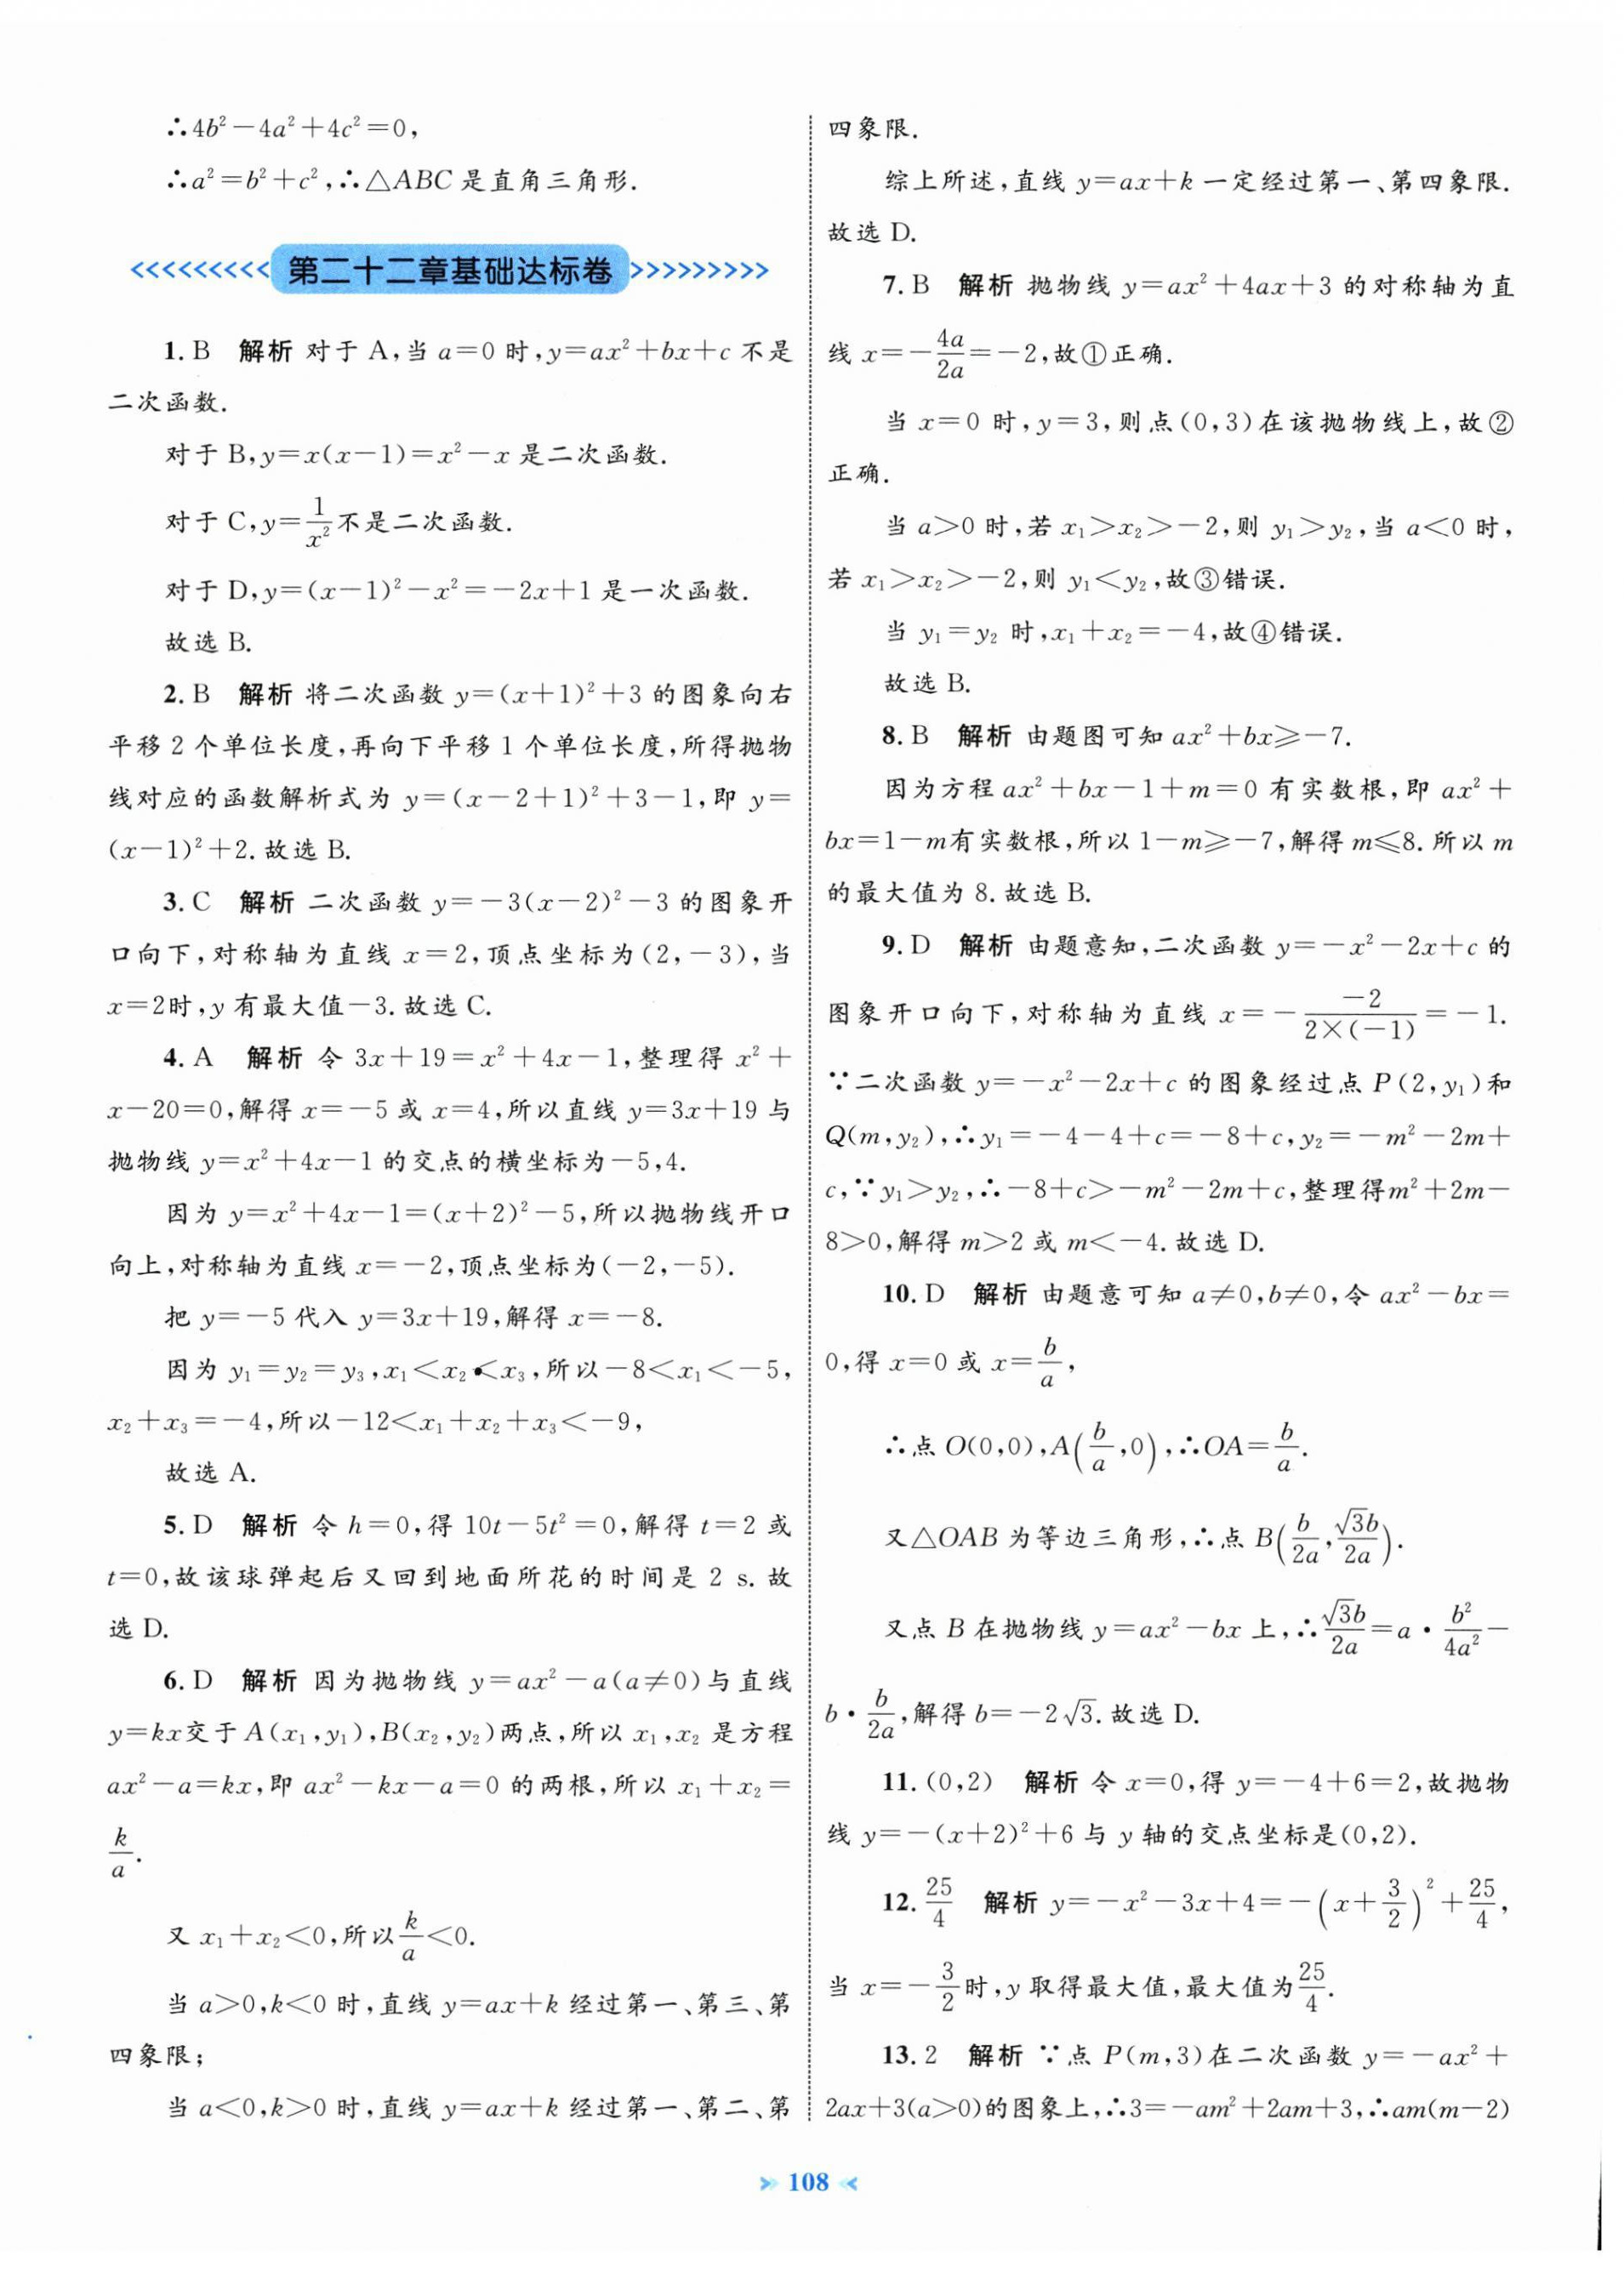 ∴4b²－4a²＋4c²＝0，
∴a²＝b²＋c²，∴△ABC 是直角三角形．
第二十二章基础达标卷
1. B　解析 对于 A，当 a＝0 时，y＝ax²＋bx＋c 不是
二次函数．
对于 B，y＝x(x－1)＝x²－x 是二次函数．
对于 C，y＝1/x²不是二次函数．
对于 D，y＝(x－1)²－x²＝－2x＋1 是一次函数．
故选 B.
2. B　解析 将二次函数 y＝(x＋1)²＋3 的图象向右
平移 2 个单位长度，再向下平移 1 个单位长度，所得抛物
线对应的函数解析式为 y＝(x－2＋1)²＋3－1，即 y＝
(x－1)²＋2. 故选 B.
3. C　解析 二次函数 y＝－3(x－2)²－3 的图象开
口向下，对称轴为直线 x＝2，顶点坐标为(2，－3)，当
x＝2时，y 有最大值－3. 故选 C.
4. A　解析 令 3x＋19＝x²＋4x－1，整理得 x²＋
x－20＝0，解得 x＝－5 或 x＝4，所以直线 y＝3x＋19 与
抛物线 y＝x²＋4x－1 的交点的横坐标为－5，4.
因为 y＝x²＋4x－1＝(x＋2)²－5，所以抛物线开口
向上，对称轴为直线 x＝－2，顶点坐标为(－2，－5)．
把 y＝－5 代入 y＝3x＋19，解得 x＝－8.
因为 y₁＝y₂＝y₃，x₁＜x₂＜x₃，所以－8＜x₁＜－5，
x₂＋x₃＝－4，所以－12＜x₁＋x₂＋x₃＜－9，
故选 A.
5. D　解析 令 h＝0，得 10t－5t²＝0，解得 t＝2 或
t＝0，故该球弹起后又回到地面所花的时间是 2 s. 故
选 D.
6. D　解析 因为抛物线 y＝ax²－a(a≠0)与直线
y＝kx交于 A(x₁，y₁)，B(x₂，y₂)两点，所以 x₁，x₂ 是方程
ax²－a＝kx，即 ax²－kx－a＝0 的两根，所以 x₁＋x₂＝
k/a.
又 x₁＋x₂＜0，所以k/a＜0.
当 a＞0，k＜0 时，直线 y＝ax＋k 经过第一、第三、第
四象限；
当 a＜0，k＞0 时，直线 y＝ax＋k 经过第一、第二、第
四象限．
综上所述，直线 y＝ax＋k 一定经过第一、第四象限．
故选 D.
7. B　解析 抛物线 y＝ax²＋4ax＋3 的对称轴为直
线 x＝－4a/2a＝－2，故①正确．
当 x＝0 时，y＝3，则点(0，3)在该抛物线上，故②
正确．
当 a＞0 时，若 x₁＞x₂＞－2，则 y₁＞y₂，当 a＜0 时，
若 x₁＞x₂＞－2，则 y₁＜y₂，故③错误．
当 y₁＝y₂ 时，x₁＋x₂＝－4，故④错误．
故选 B.
8. B　解析 由题图可知 ax²＋bx≥－7.
因为方程 ax²＋bx－1＋m＝0 有实数根，即 ax²＋
bx＝1－m有实数根，所以 1－m≥－7，解得 m≤8. 所以 m
的最大值为 8. 故选 B.
9. D　解析 由题意知，二次函数 y＝－x²－2x＋c 的
图象开口向下，对称轴为直线 x＝－ －2/2×(－1)＝－1.
∵二次函数 y＝－x²－2x＋c 的图象经过点 P(2，y₁)和
Q(m，y₂)，∴y₁＝－4－4＋c＝－8＋c，y₂＝－m²－2m＋
c，∵y₁＞y₂，∴－8＋c＞－m²－2m＋c，整理得m²＋2m－
8＞0，解得 m＞2 或 m＜－4. 故选 D.
10. D　解析 由题意可知 a≠0，b≠0，令 ax²－bx＝
0，得 x＝0 或 x＝b/a，
∴点 O(0，0)，A(b/a，0)，∴OA＝b/a.
又△OAB 为等边三角形，∴点 B(b/2a，√3b/2a).
又点 B 在抛物线 y＝ax²－bx 上，∴√3b/2a＝a·b²/4a²－
b·b/2a，解得 b＝－2√3. 故选 D.
11. (0，2)　解析 令 x＝0，得 y＝－4＋6＝2，故抛物
线 y＝－(x＋2)²＋6 与 y 轴的交点坐标是(0，2)．
12. 25/4　解析 y＝－x²－3x＋4＝－(x＋3/2)²＋25/4，
当 x＝－3/2时，y 取得最大值，最大值为25/4.
13. 2　解析 ∵点 P(m，3)在二次函数 y＝－ax²＋
2ax＋3(a＞0)的图象上，∴3＝－am²＋2am＋3，∴am(m－2)
108